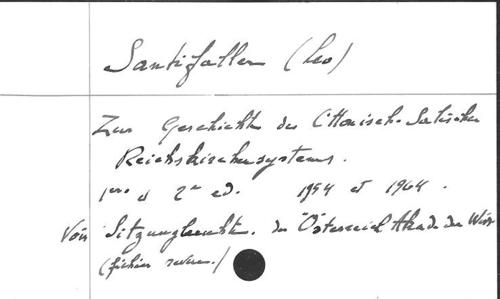 Santifaller (Leo)
Zur Geschichte des Ottonisch-Salischen
Reichskirchensystems.
1ère et 2e ed. 1954 et 1964.
Voir Sitzungberichte. der Österreich Akad. der Wiss
(fichier revues.)